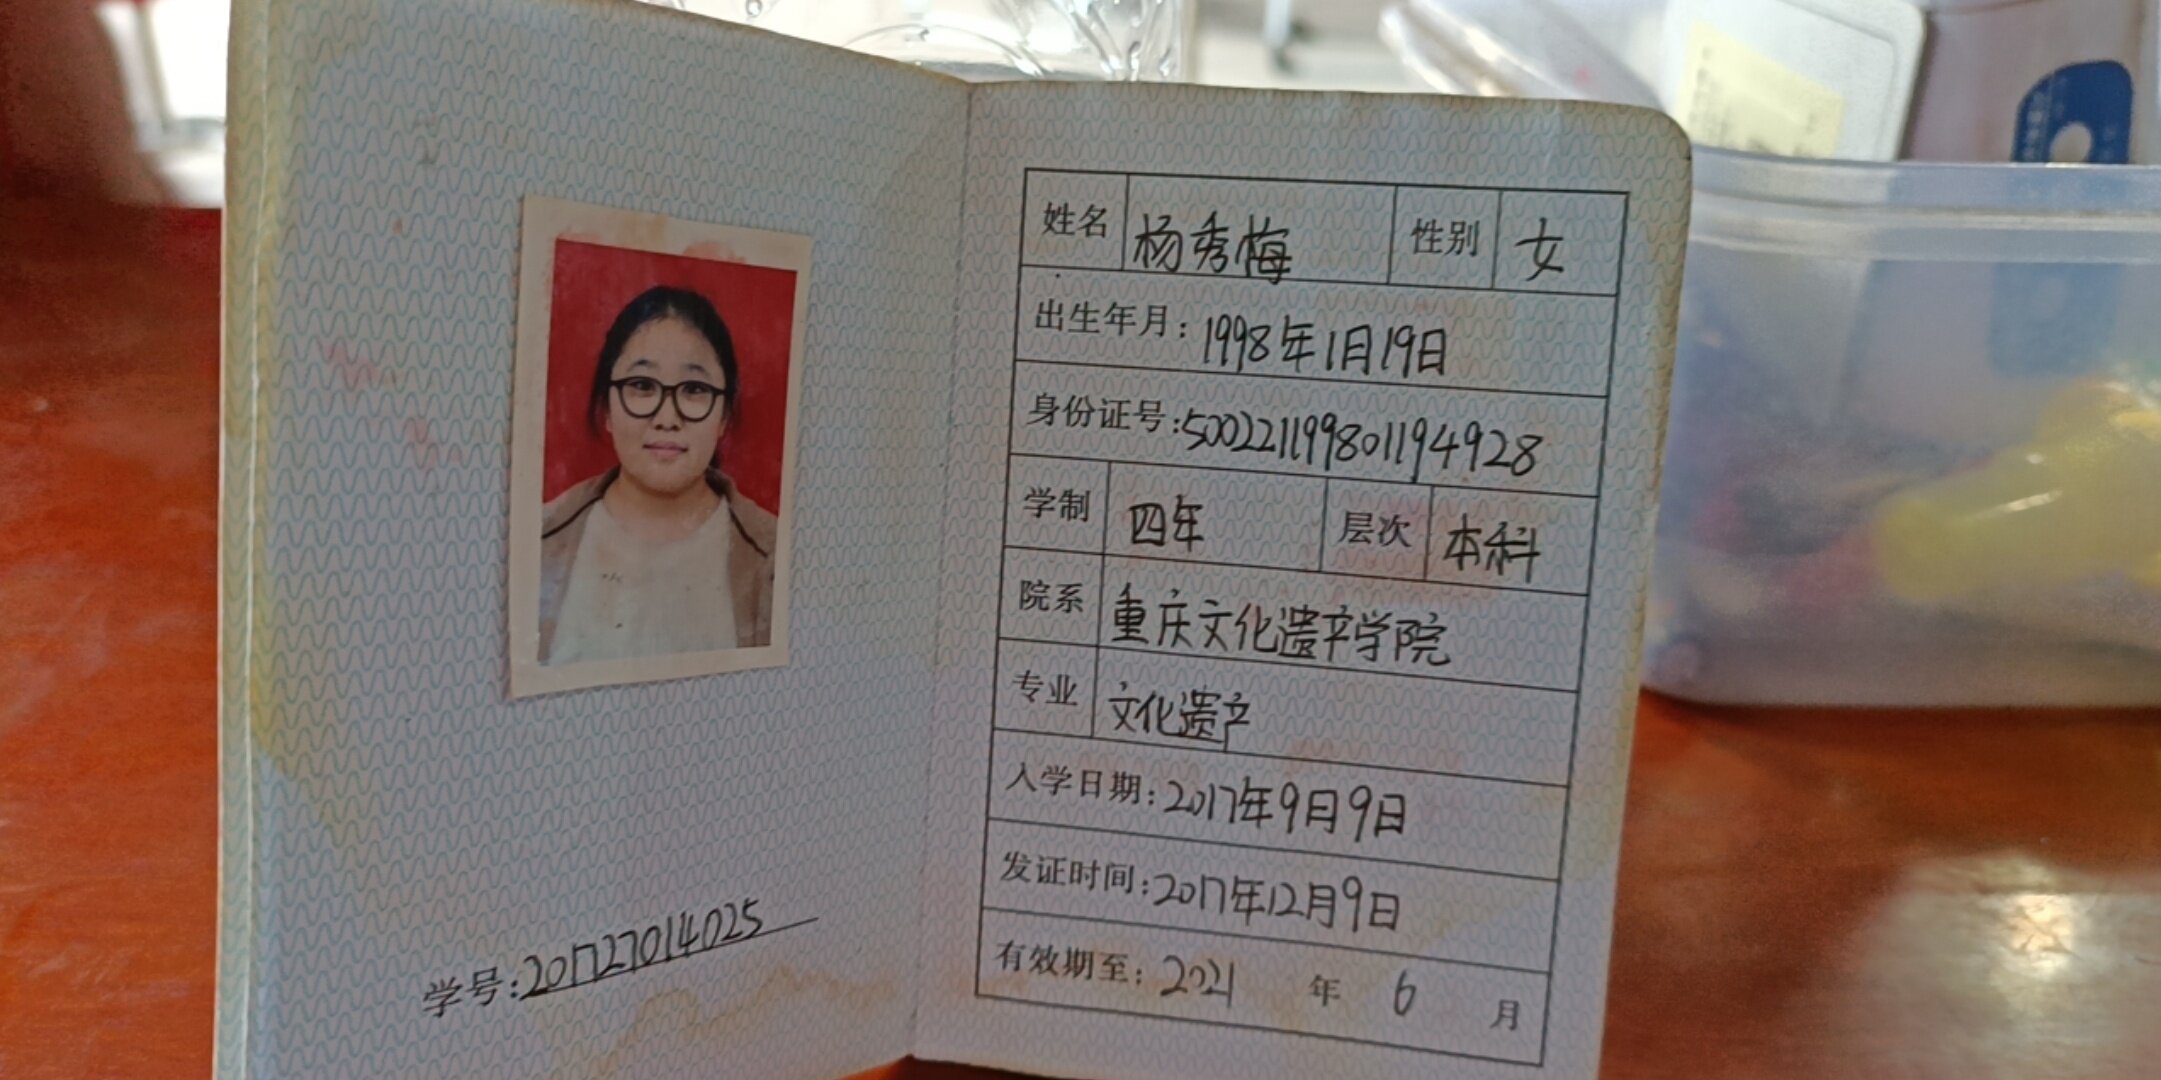 学号:201727014025
姓名 杨秀梅 性别 女
出生年月:1998年1月19日
身份证号:500221199801194928
学制 四年 层次 本科
院系 重庆文化遗产学院
专业 文化遗产
入学日期:2017年9月9日
发证时间:2017年12月9日
有效期至:2021 年 6 月